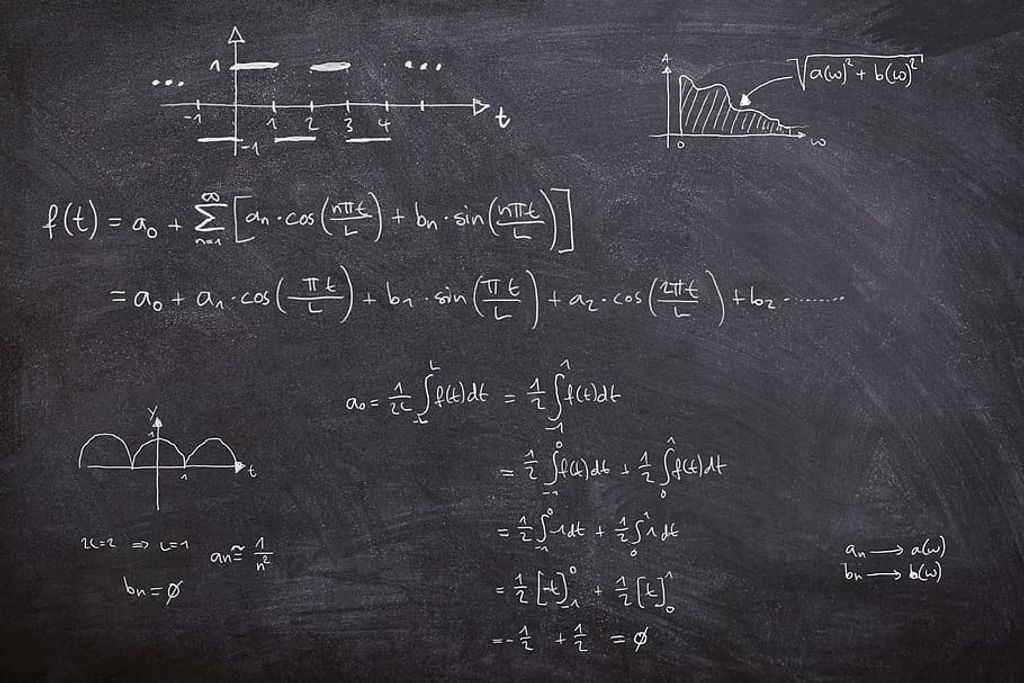 1
... ...
-1 1 2 3 4 t
-1
√(a(ω)² + b(ω)²)
0 ω
f(t) = a₀ + ∑ₙ₌₁^∞ [aₙ · cos(nπt/L) + bₙ · sin(nπt/L)]
= a₀ + a₁ · cos(πt/L) + b₁ · sin(πt/L) + a₂ · cos(2πt/L) + b₂ ........
a₀ = 1/2L ∫₋L^L f(t)dt = 1/2 ∫₋₁^1 f(t)dt
= 1/2 ∫₋₁^0 f(t)dt + 1/2 ∫₀^1 f(t)dt
= 1/2 ∫₋₁^0 -1dt + 1/2 ∫₀^1 1dt
= 1/2 [-t]₋₁^0 + 1/2 [t]₀^1
= -1/2 + 1/2 = ∅
y
1
t
1
2L=2 ⇒ L=1
aₙ ≅ 1/n²
bₙ = ∅
aₙ → a(ω)
bₙ → b(ω)